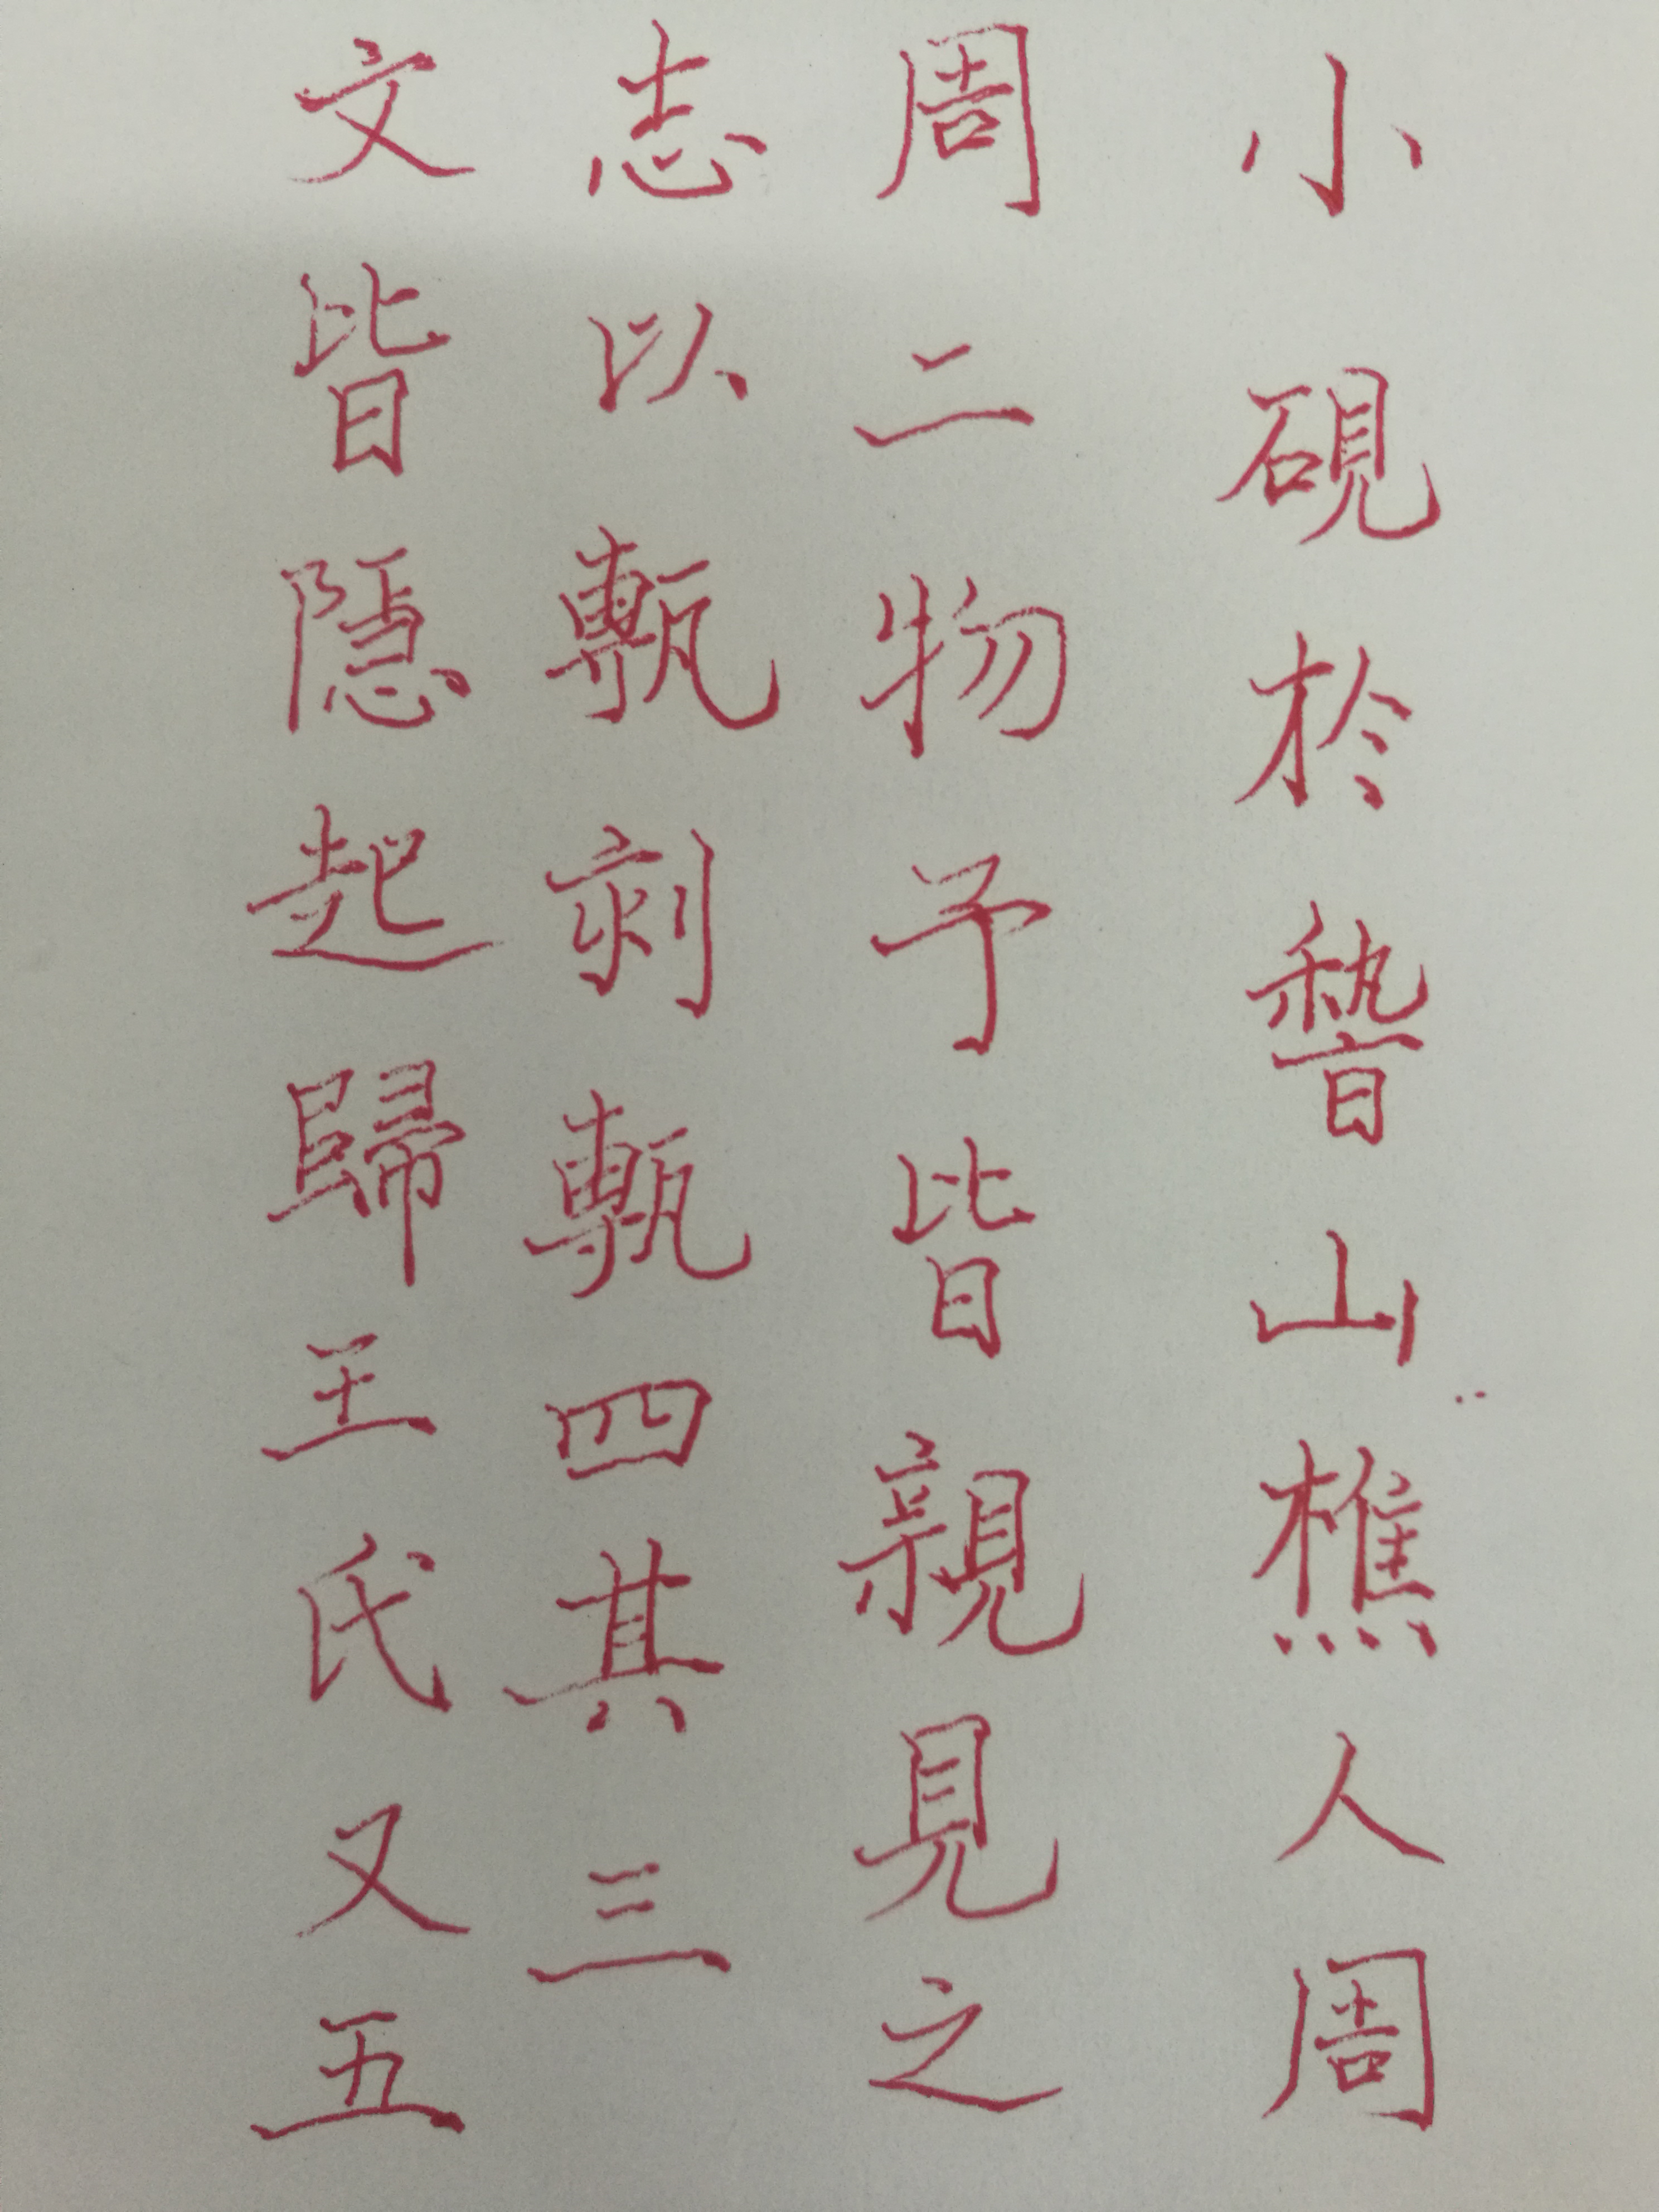 小硯於稽山樵人周
周二物予皆親見之
志以甎刻甎四其三
文皆隱起歸王氏又五